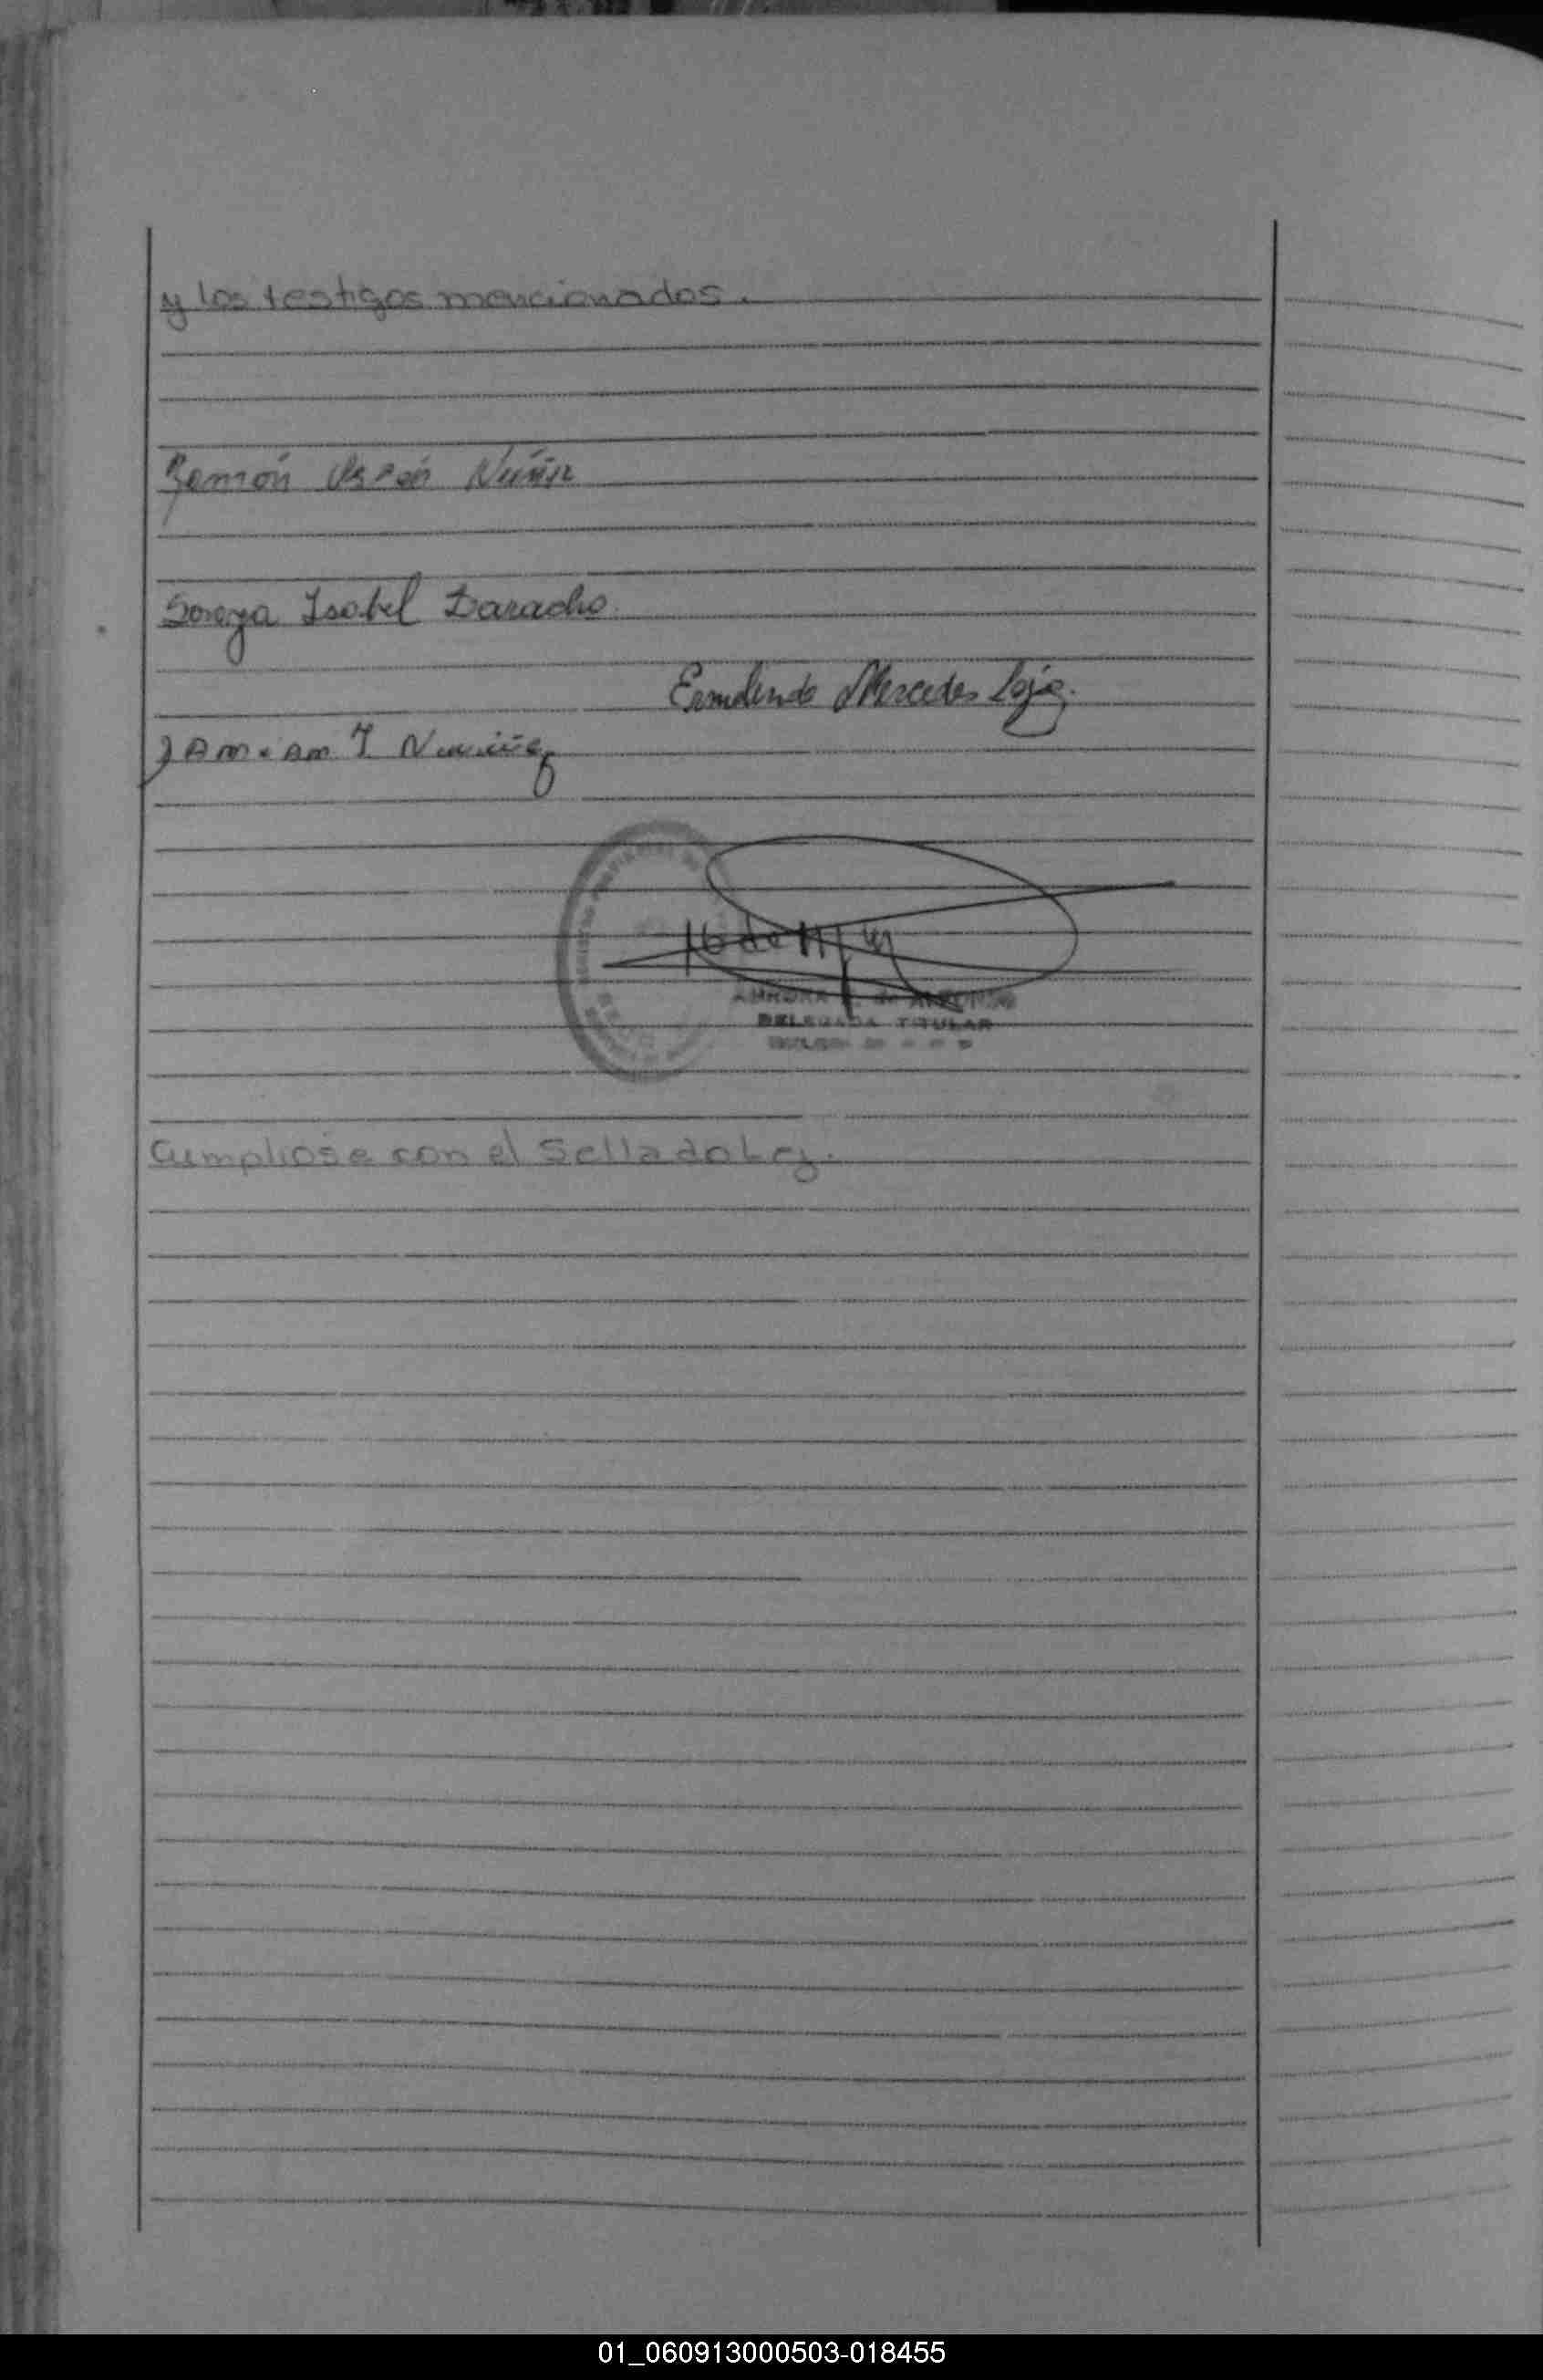 y los testigos mencionados.
Ramón Núñez
Isabel Daracho
Ermelinda Mercedes Loja.
Damian I Nuñez
DELEGADA TITULAR
Cumpliose con el Sellado Ley.
01_060913000503-018455